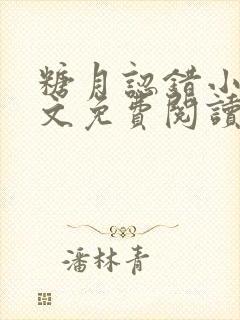 糖月認錯小
文免費閱讀
潘林青